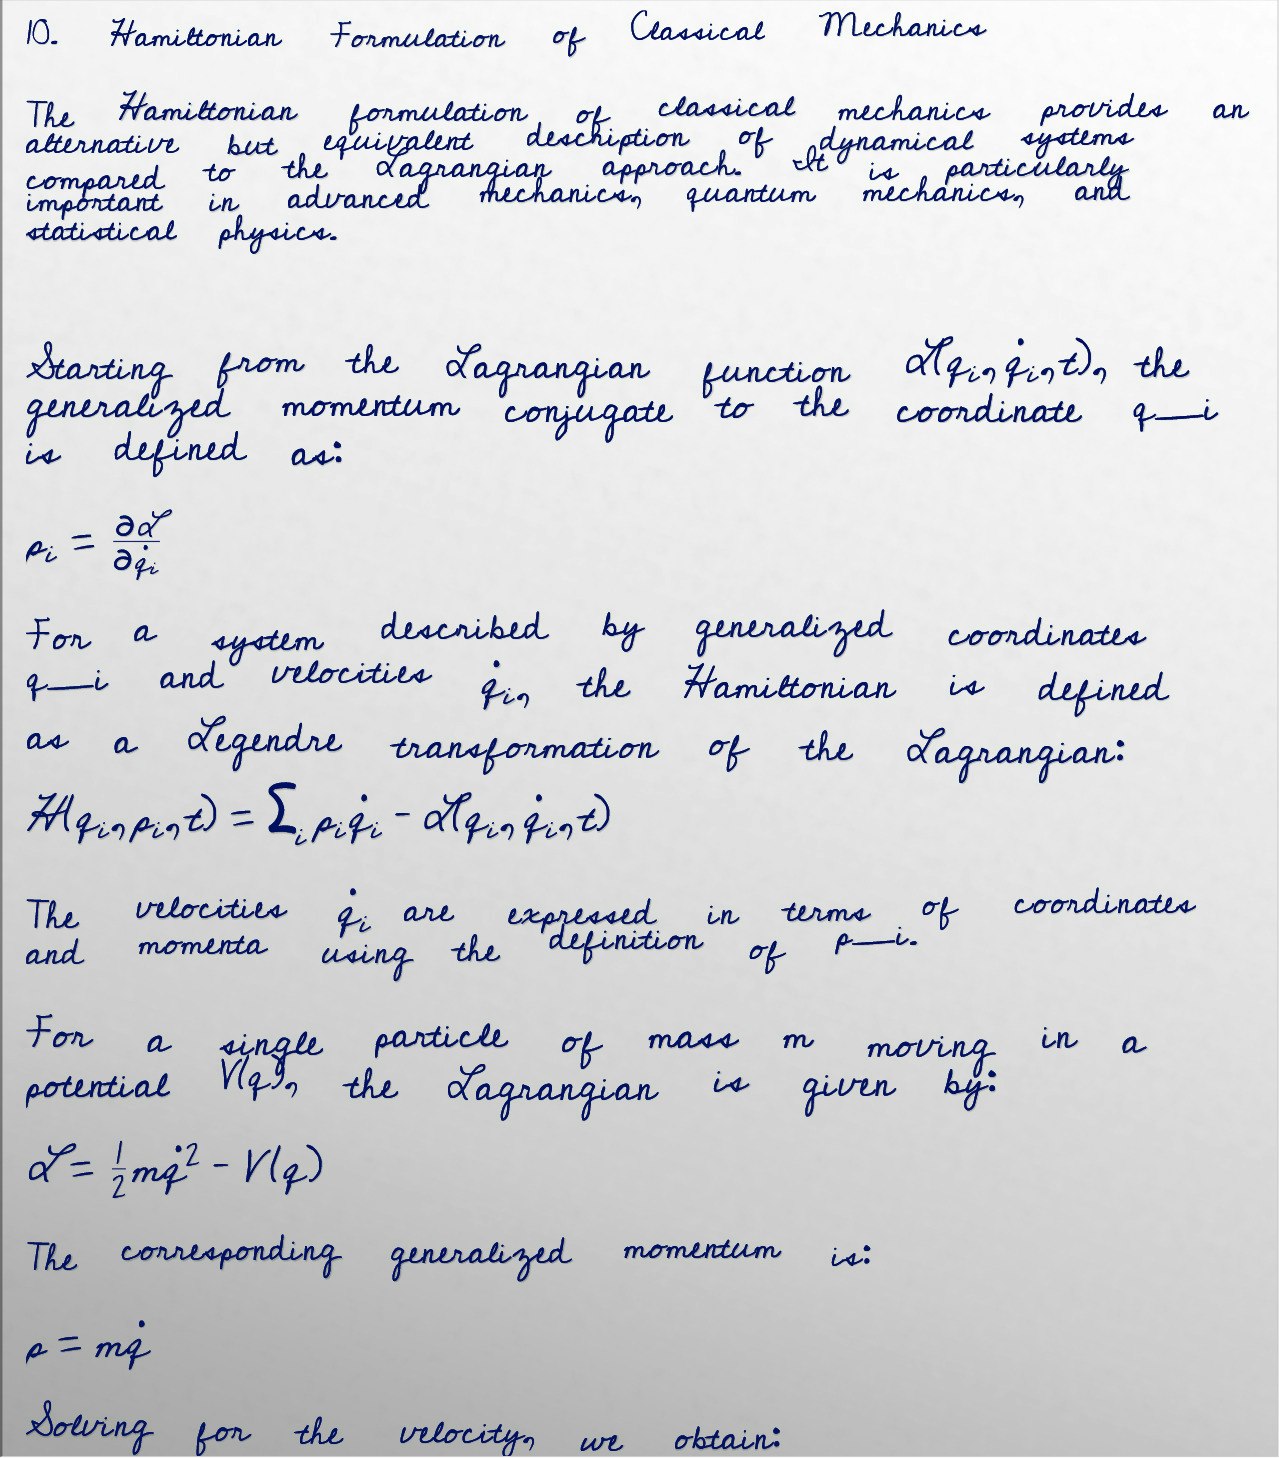 10. Hamiltonian Formulation of Classical Mechanics
The Hamiltonian formulation of classical mechanics provides an
alternative but equivalent description of dynamical systems
compared to the Lagrangian approach. It is particularly
important in advanced mechanics, quantum mechanics, and
statistical physics.
Starting from the Lagrangian function ℒ(qᵢ, q̇ᵢ, t), the
generalized momentum conjugate to the coordinate q_i
is defined as:
pᵢ = ∂ℒ/∂q̇ᵢ
For a system described by generalized coordinates
q_i and velocities q̇ᵢ, the Hamiltonian is defined
as a Legendre transformation of the Lagrangian:
H(qᵢ, pᵢ, t) = ∑ᵢ pᵢq̇ᵢ - ℒ(qᵢ, q̇ᵢ, t)
The velocities q̇ᵢ are expressed in terms of coordinates
and momenta using the definition of p_i.
For a single particle of mass m moving in a
potential V(q), the Lagrangian is given by:
ℒ = ½mq̇² - V(q)
The corresponding generalized momentum is:
p = mq̇
Solving for the velocity, we obtain: